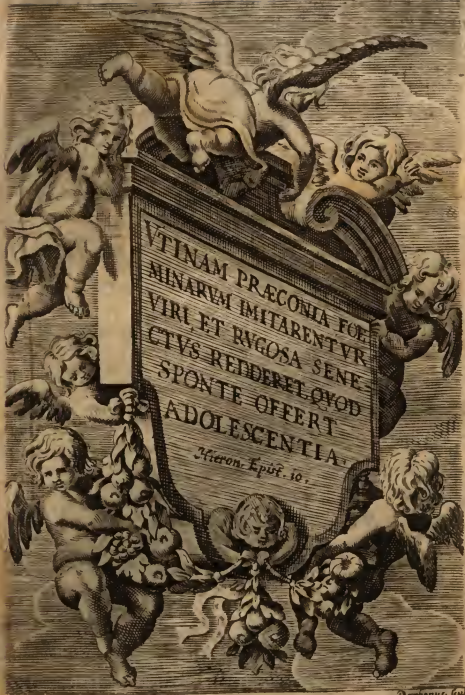 VTINAM PRÆCONIA FOE
MINARVM IMITARENTVR
VIRI, ET RVGOSA SENE-
CTVS REDDERET, QVOD
SPONTE OFFERT
ADOLESCENTIA.
Hieron. Epist. 10.